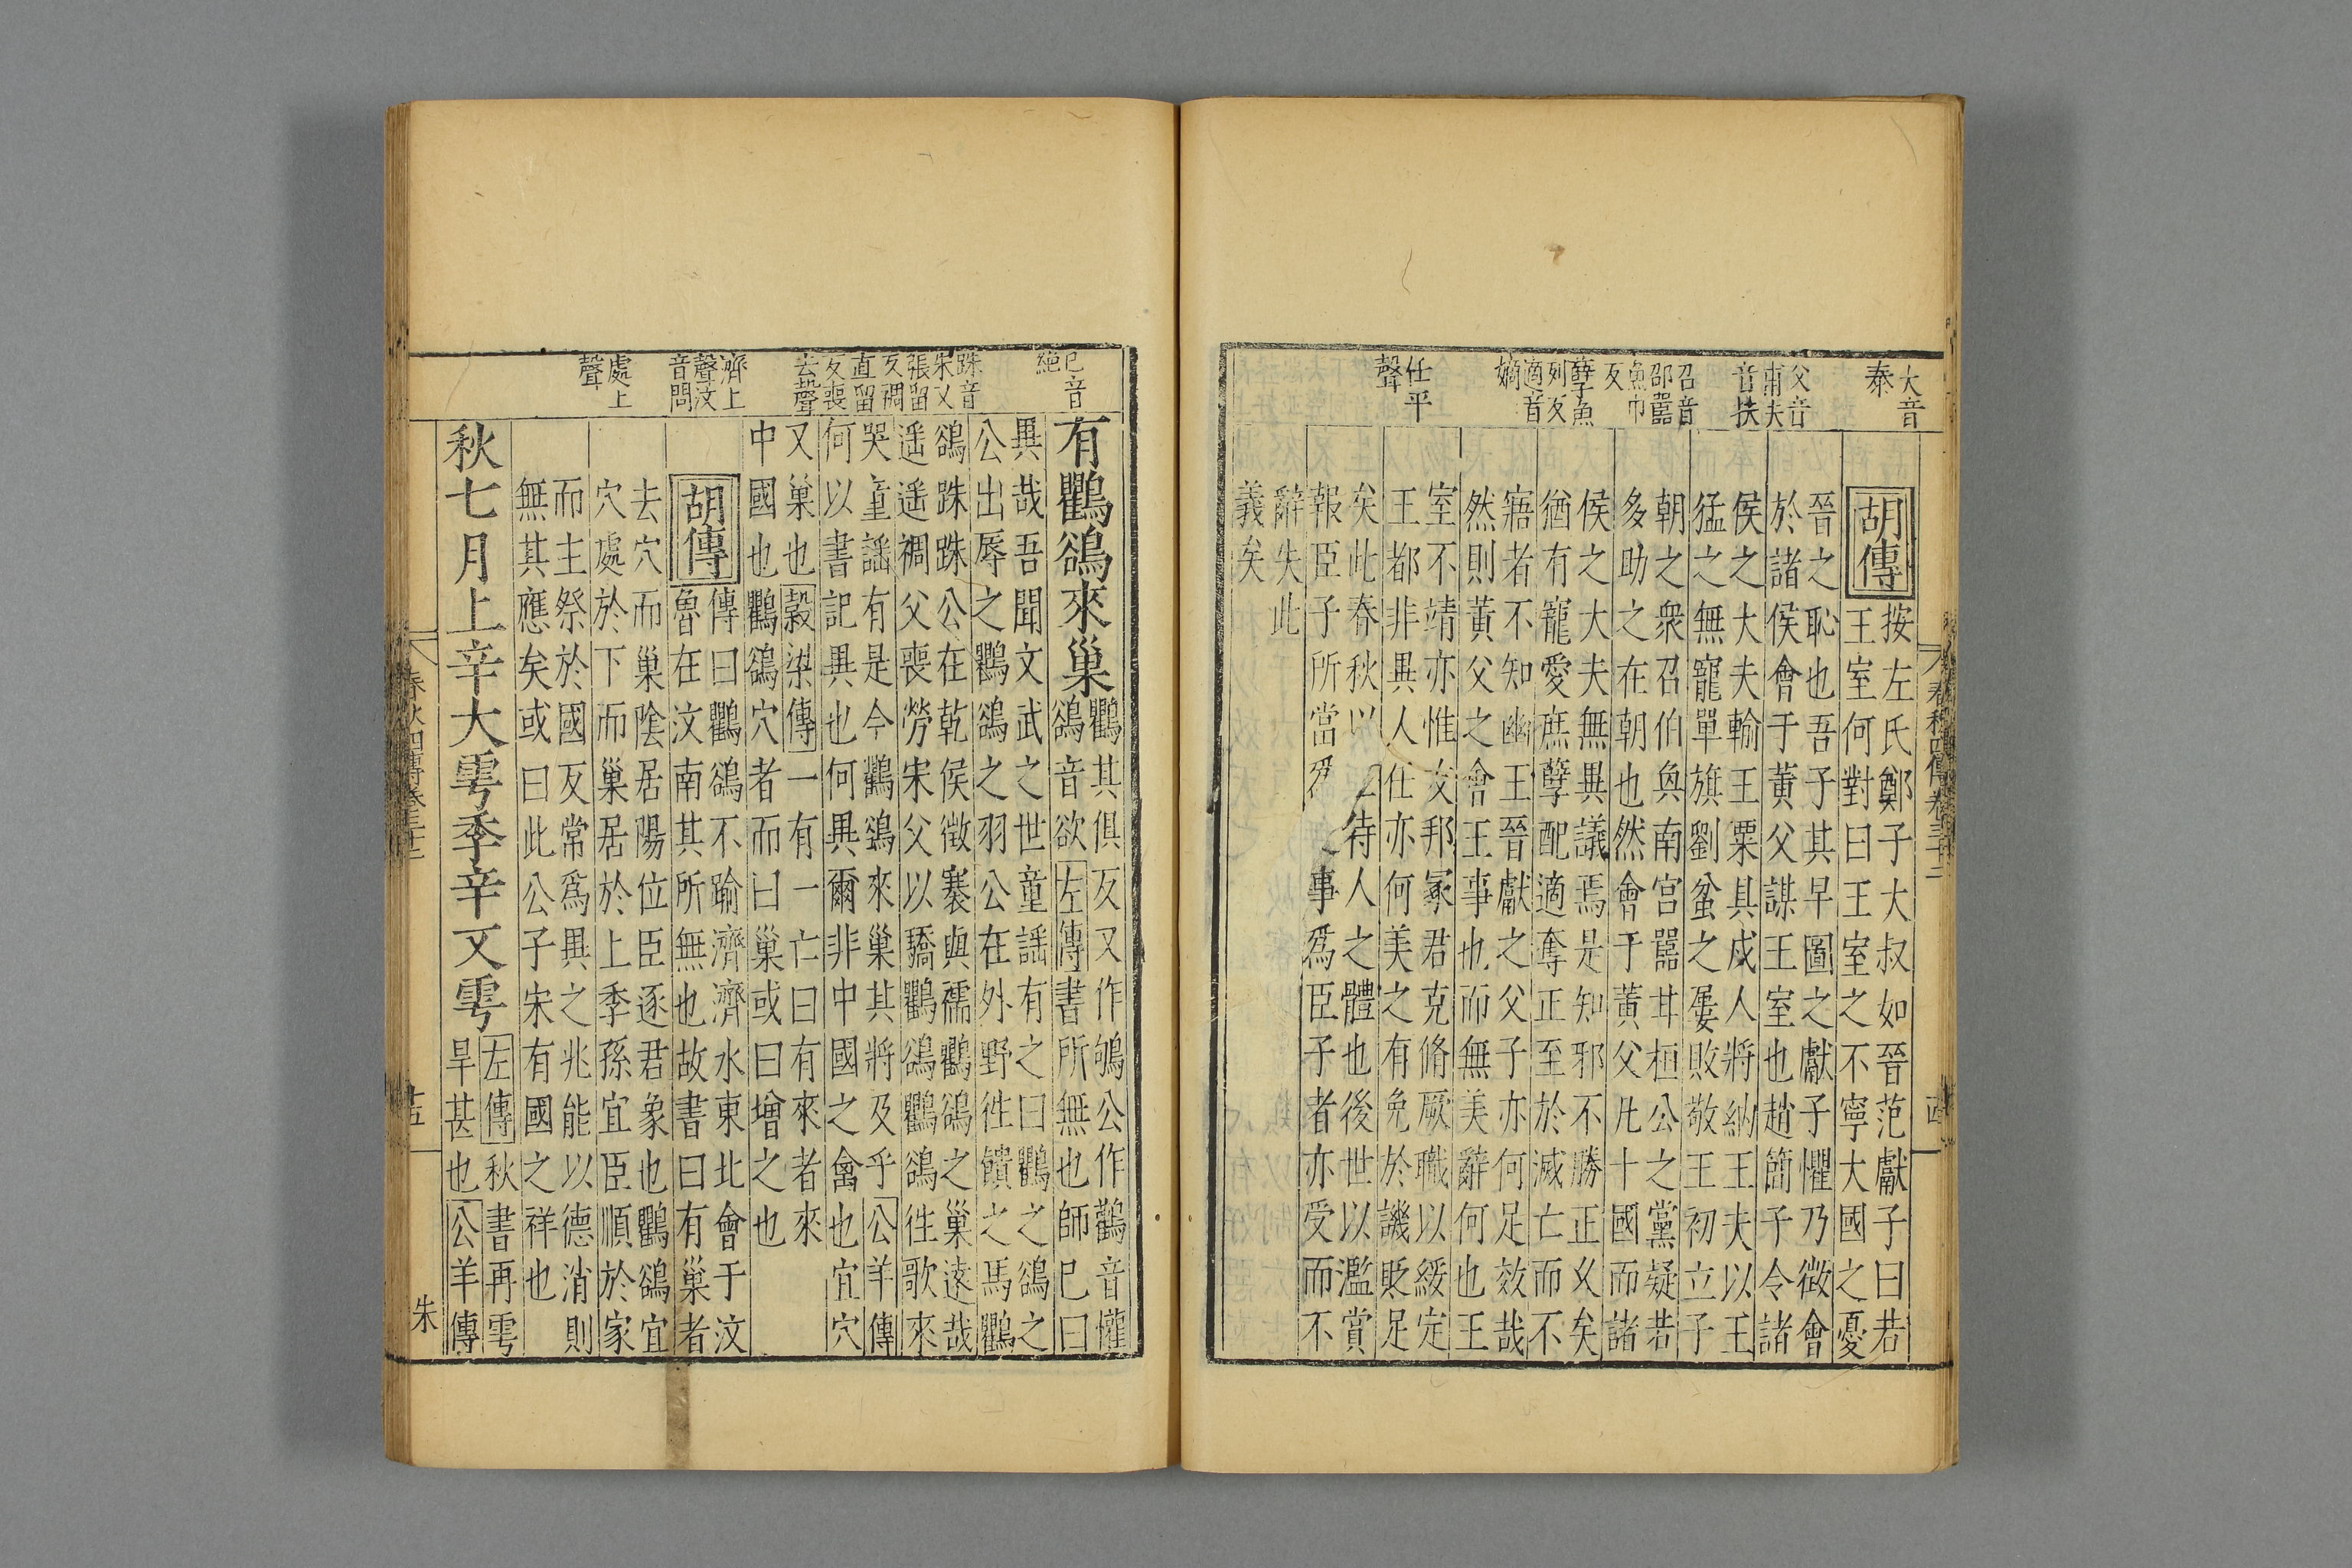 大音
泰
父音
甫夫
音扶
召音
邵嚚
魚巾
反
孽魚
列反
適音
嫡
任平
聲
胡傳
按左氏鄭子大叔如晉范獻子曰若
王室何對曰王室之不寧大國之憂
晉之恥也吾子其早圖之獻子懼乃徵會
於諸侯會于黃父謀王室也趙簡子令諸
侯之大夫輸王粟具戍人將納王夫以王
猛之無寵單旗劉蚠之屢敗敬王初立子
朝之衆召伯奐南宮嚚甘桓公之黨疑若
多助之在朝也然會于黃父凡十國而諸
侯之大夫無異議焉是知邪不勝正久矣
猶有寵愛庶孽配適奪正至於滅亡而不
寤者不知幽王晉獻之父子亦何足效哉
然則黃父之會王事也而無美辭何也王
室不靖亦惟友邦冢君克脩厥職以綏定
王都非異人任亦何美之有免於譏貶足
矣此春秋以待人之體也後世以濫賞
報臣子所當之事爲臣子者亦受而不
辭失此
義矣
春秋四傳卷三十二
巳音
絕
跦音
朱又
張留
反裯
直留
反喪
去聲
濟上
聲汶
音問
處上
聲
有鸜鵒來巢
鸜其俱反又作鴝公作鸛音懽
鵒音欲左傳書所無也師巳曰
異哉吾聞文武之世童謠有之曰鸜之鵒之
公出辱之鸜鵒之羽公在外野徃饋之馬鸜
鵒跦跦公在乾侯徵褰與襦鸜鵒之巢遠哉
遥遥裯父喪勞宋父以驕鸜鵒鸜鵒徃歌來
哭童謠有是今鸜鵒來巢其將及乎公羊傳
何以書記異也何異爾非中國之禽也宜穴
又巢也穀梁傳一有一亡曰有來者來
中國也鸜鵒穴者而曰巢或曰增之也
胡傳
傳曰鸜鵒不踰濟濟水東北會于汶
魯在汶南其所無也故書曰有巢者
去穴而巢陰居陽位臣逐君象也鸜鵒宜
穴處於下而巢居於上季孫宜臣順於家
而主祭於國反常爲異之兆能以德消則
無其應矣或曰此公子宋有國之祥也
秋七月上辛大雩季辛又雩
左傳秋書再雩
旱甚也公羊傳
春秋四傳卷三十二
十五
朱